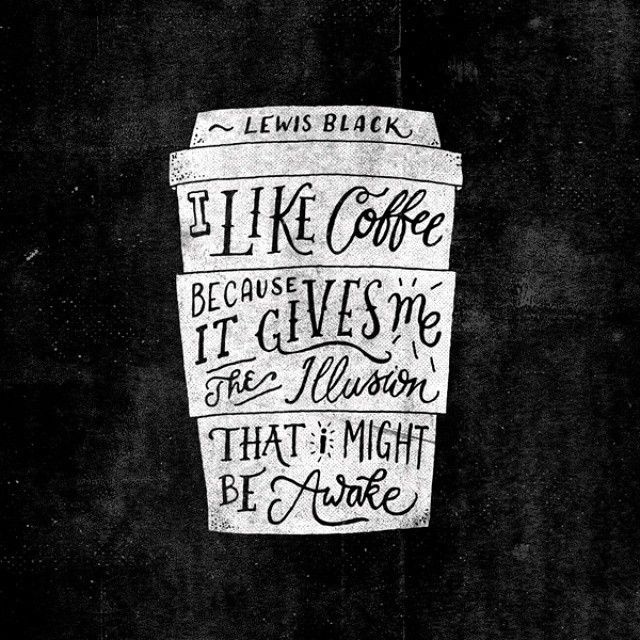 ~ LEWIS BLACK
I LIKE Coffee
BECAUSE
IT GIVES me
THE Illusion
THAT i MIGHT
BE Awake